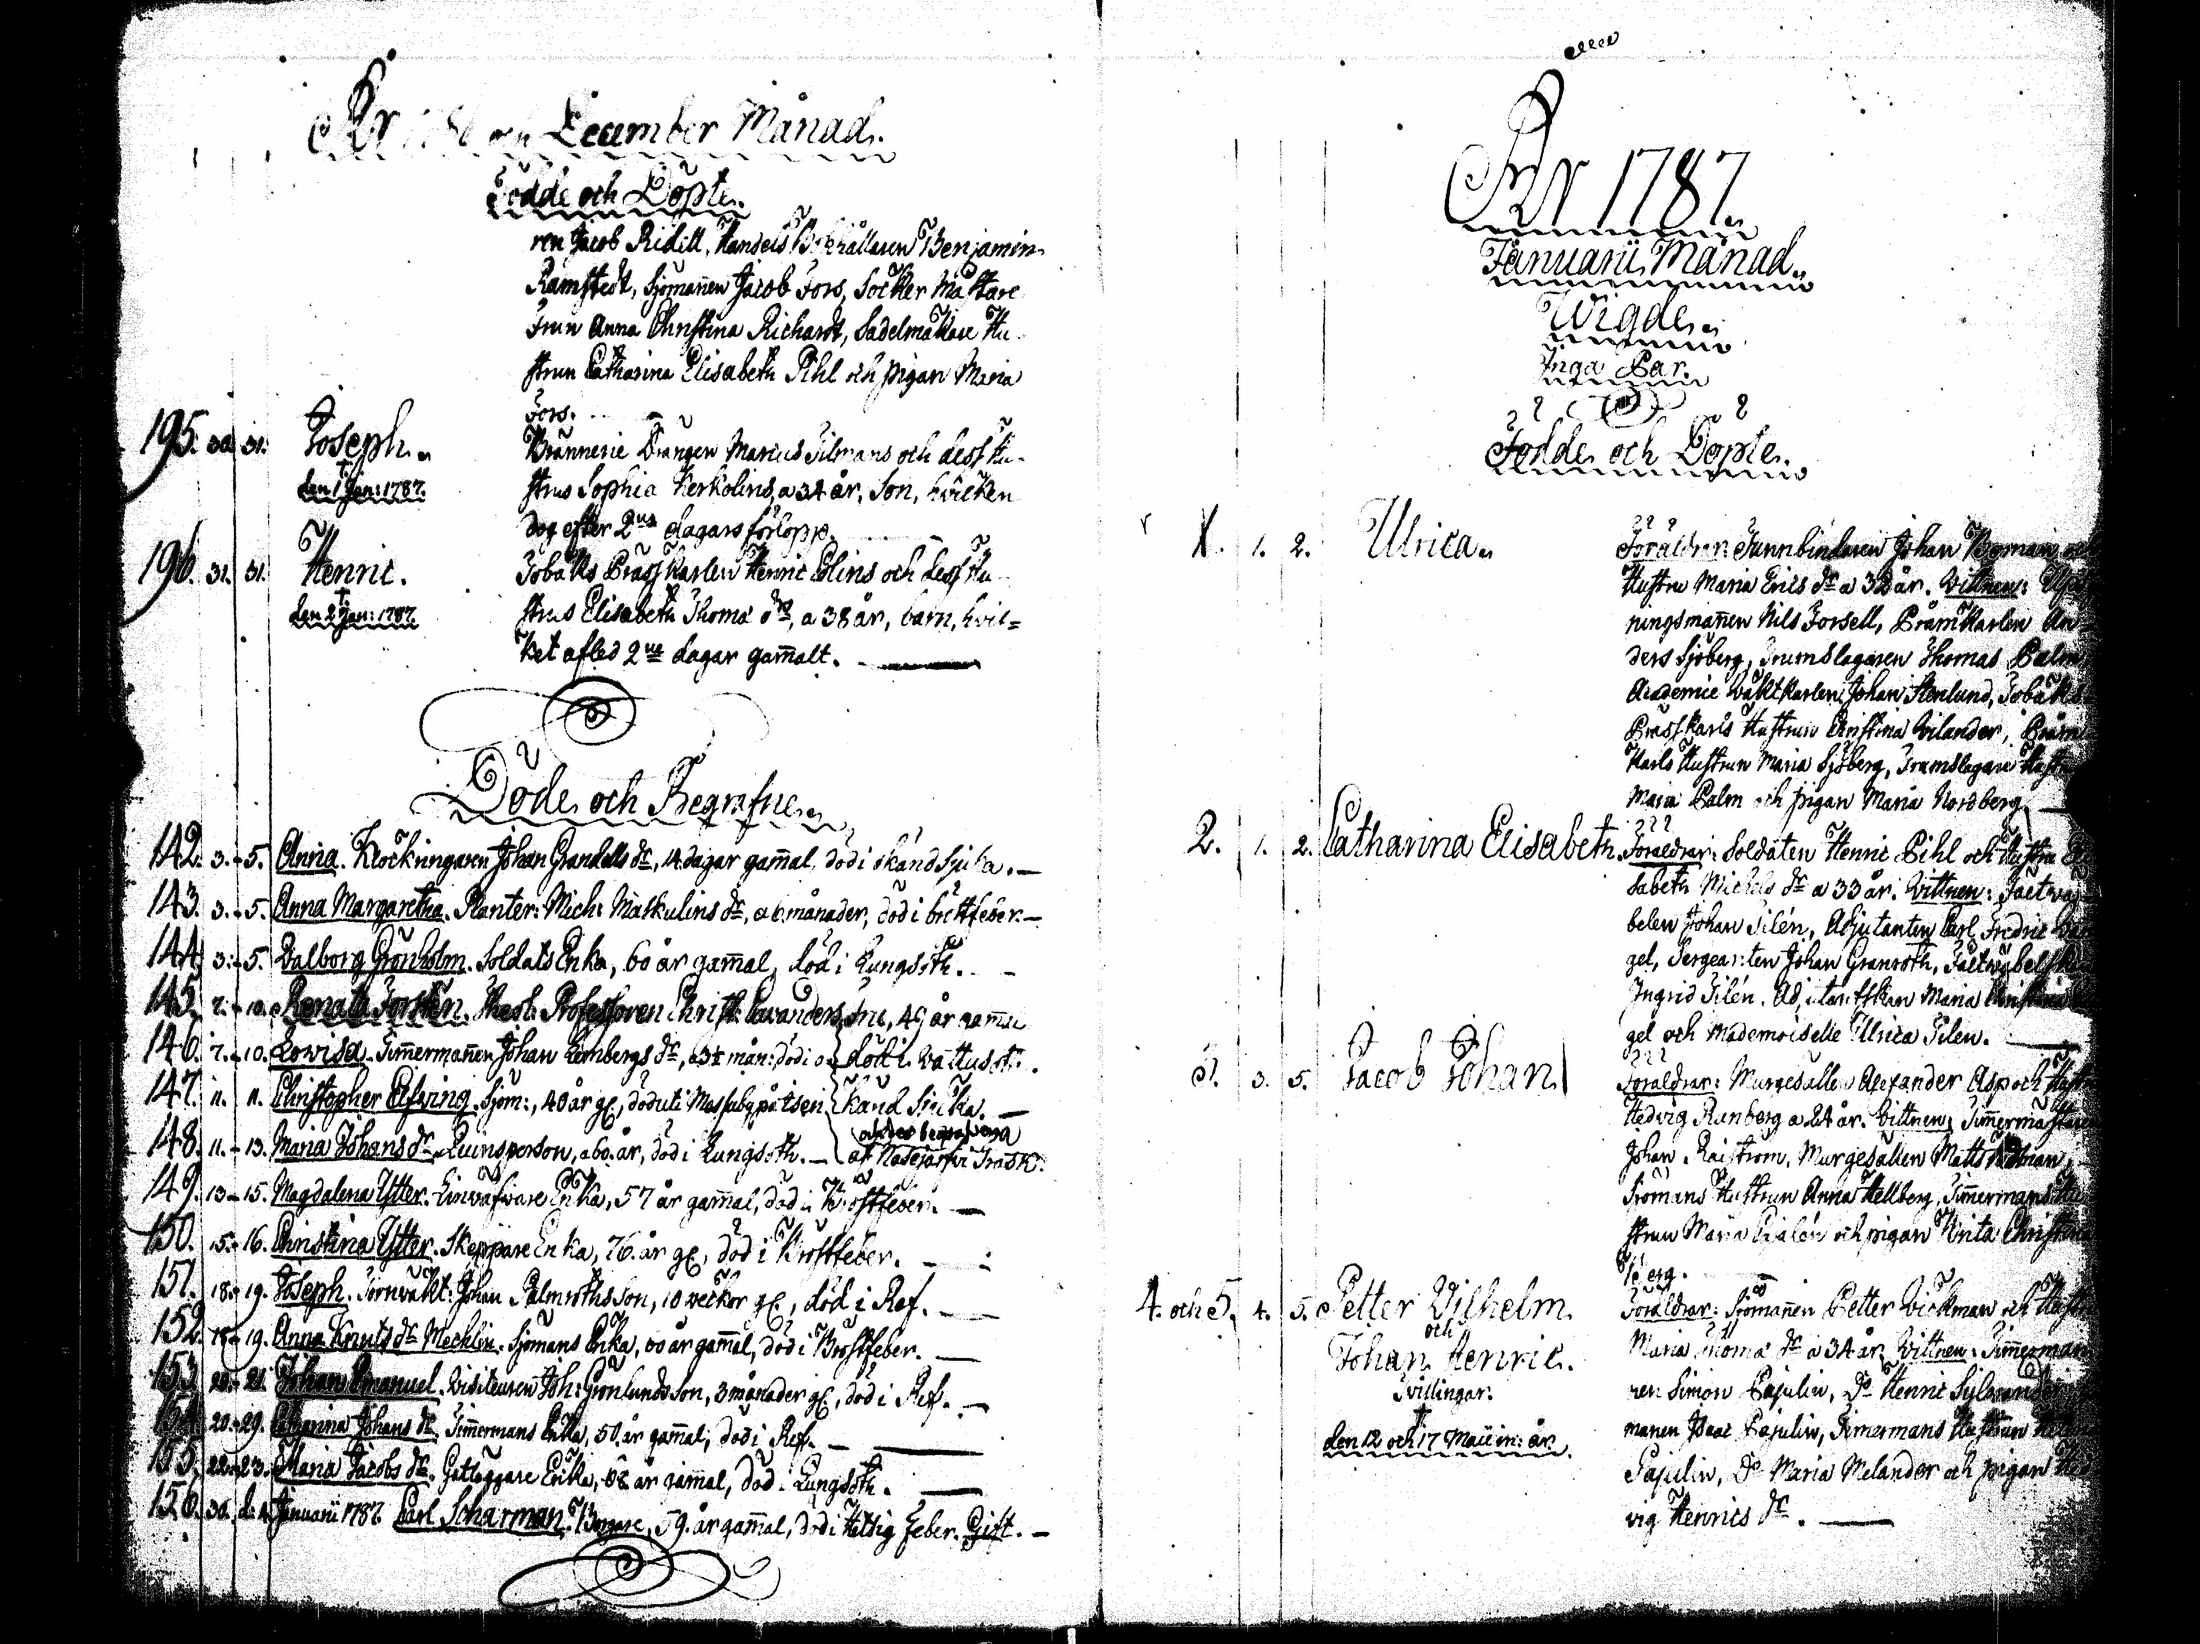 År 1786 och December Månad.
Födde och Döpte.
ren Jacob Ridill, Handels Bokhållaren Benjamin
Ramstedt, Sjömannen Jacob Fors, Socker Mästare
Frun Anna Christina Richardt, Sadelmakare Hu-
strun Catharina Elisabeth Pihl och pigan Maria
Fors.
195. 30. 31. Joseph. Brännerie Drängen Marcus Silmans och dess Hu-
† den 1 Jan: 1787. strus Sophia Kerkolins, a 34 år, Son, hvilken
dog efter 2ne dagars förlopp.
196. 31. 31. Henric. Tobaks Prässkarlen Henric Elins och dess Hu-
† den 2 Jan: 1787. strus Elisabeth Thomæ dr, a 38 år, barn, hvil=
ket afled 2ne dagar gammalt.
Döde och Begrafne.
142. 3.-5. Anna. Klockringaren Johan Grandells dr, 14 dagar gammal, död i okänd Sjuka.
143. 3.-5. Anna Margaretha. Planter: Mich: Maskulins dr, a 6 månader, död i bröstfeber.
144. 3.-5. Valborg Grönholm. Soldats Enka, 60 år gammal, död i Lungsoth.
145. 7.-10. Renata Forstén. Theol: Professoren Christ: Cavanders fru, 49 år gammal
146. 7.-10. Lovisa. Timmermannen Johan Lembergs dr, a 3½ mån: död i o- död i Vattusot.
147. 11. 11. Christopher Elfving. Sjöm:, 40 år gl, död uti Massaby på Isen känd Sjuka.
148. 11.-13. Maria Johans dr. Qvinsperson, a 60 år, död i Lungsoth.
af Nådejärfvi Träsk.
149. 13-15. Magdalena Ytter. Linväfvare Enka, 57 år gammal, död i Bröstfeber.
150. 15.-16. Christina Ytter. Skeppare Enka, 76 år gl, död i Bröstfeber.
151. 18.-19. Joseph. Tornväkt: Johan Palmroths Son, 10 veckor gl, död i Ref.
152. 18-19. Anna Knuts dr Mechlin. Sjömans Enka, 60 år gammal, död i Bröstfeber.
153. 20.-21. Johan Emanuel. Visiteuren Joh: Grönlunds Son, 3 månader gl, död i Ref.
154. 20.-29. Catharina Johans dr. Timmermans Enka, 50 år gammal, död i Ref.
155. 22.-23. Maria Jacobs dr. Gatläggare Enka, år gammal, död i Lungsoth.
156. 30. d. 4. Januarii 1787. Carl Scharman. Borgare, 59 år gammal, död i Hetsig Feber. Gift.
År 1787.
Januarii Månad.
Wigde.
Inga Par.
Födde och Döpte.
1. 1. 2. Ulrica. Föräldrar: Tunnbindaren Johan Boman och
Hustru Maria Erics dr a 32 år. Vittnen:
ningsmannen Nils Forsell, Pråmkarlen An-
ders Sjöberg, Trumslagaren Thomas Palm,
Academie Vaktkarlen Johan Stenlund, Tobaks
Prässkarls Hustrun Christina Vilander, Pråm-
karls Hustrun Maria Sjöberg, Trumslagare Hustru
Maria Palm och pigan Maria Nordberg.
2. 1. 2. Catharina Elisabeth. Föräldrar: Soldaten Henric Pihl och Hustru Eli-
sabeth Michels dr a 33 år. Vittnen: Fältvä-
belen Johan Silén, Adjutanten Carl Fredric
gel, Sergeanten Johan Granroth, Fältväbelskan
Ingrid Silén, Adjutantskan Maria Christina
gel och Mademoiselle Ulrica Silen.
3. 3. 5. Jacob Johan. Föräldrar: Murgesällen Alexander Asp och Hustru
Hedvig Runberg a 24 år. Vittnen: Timmermästaren
Johan Raiström, Murgesällen Matts
Strömans Hustrun Anna Hellberg, Timmermans Hu-
strun Maria och pigan Brita Christina
berg.
4. och 5. 4. 5. Petter Vilhelm Föräldrar: Sjömannen Petter Vickman och Hustru
och Maria Thomæ dr a 34 år. Vittnen: Timmerman-
Johan Henric. nen Simon Pajulin, Do Henric
Tvillingar. manen Isaac Pajulin, Timmermans Hustrun
† Pajulin, Do Maria Melander och pigan Hed-
den 12 och 17 Maii in: år. vig Henrics dr.